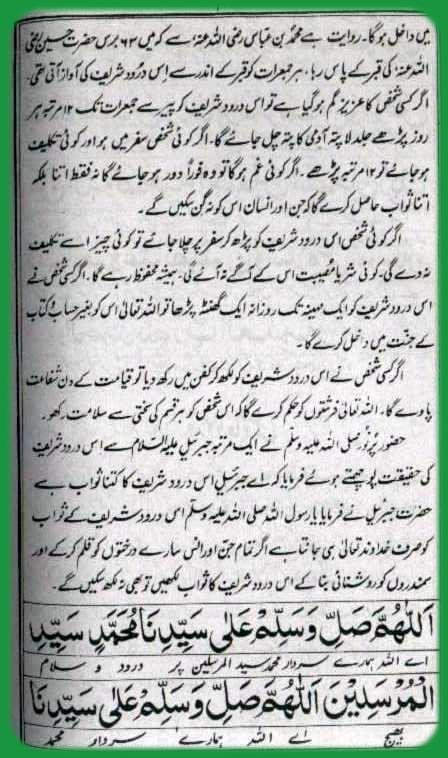 میں داخل ہوگا۔ روایت ہے محمد بن عباس رضی اللہ عنہ سے کہ میں ۶۳ برس حضرت حسین رضی
اللہ عنہ کی قبر کے پاس رہا، ہر جمعرات کو قبر کے اندر سے اس درود شریف کی آواز آتی تھی۔
اگر کسی شخص کا عزیز گم ہوگیا ہے تو اس درود شریف کو پیر سے جمعرات تک ۱۲ مرتبہ ہر
روز پڑھے جلد لا پتہ آدمی کا پتہ چل جائے گا۔ اگر کوئی شخص سفر میں ہو اور کوئی تکلیف
ہو جائے تو ۱۲ مرتبہ پڑھے۔ اگر کوئی غم ہوگا تو وہ فوراً دور ہو جائے گا نہ فقط اتنا بلکہ
اتنا ثواب حاصل کرے گا کہ جن اور انسان اس کو نہ گن سکیں گے۔
اگر کوئی شخص اس درود شریف کو پڑھ کر سفر پر چلا جائے تو کوئی چیز اسے تکلیف
نہ دے گی۔ کوئی شر یا مصیبت اس کے آگے نہ آئے گی۔ ہمیشہ محفوظ رہے گا۔ اگر کسی شخص نے
اس درود شریف کو ایک مہینہ تک روزانہ ایک گھنٹہ پڑھا تو اللہ تعالیٰ اس کو بغیر حساب و کتاب
کے جنت میں داخل کرے گا۔
اگر کسی شخص نے اس درود شریف کو لکھ کر کفن میں رکھ دیا تو قیامت کے دن شفاعت
پاوے گا۔ اللہ تعالیٰ فرشتوں کو حکم کرے گا کہ اس شخص کو ہر قسم کی سختی سے سلامت رکھو۔
حضور پرنور صلی اللہ علیہ وسلم نے ایک مرتبہ جبرئیل علیہ السلام سے اس درود شریف
کی حقیقت پوچھتے ہوئے فرمایا کہ اے جبرئیل اس درود شریف کا کتنا ثواب ہے
حضرت جبرئیل نے فرمایا یا رسول اللہ صلی اللہ علیہ وسلم اس درود شریف کے ثواب
کو صرف خداوند تعالیٰ ہی جانتا ہے اگر تمام جن اور انس سارے درختوں کو قلم کرکے اور
سمندروں کو روشنائی بنا کے اس درود شریف کا ثواب لکھیں تو بھی نہ لکھ سکیں گے۔
اَللّٰهُمَّ صَلِّ وَسَلِّمْ عَلٰى سَيِّدِنَا مُحَمَّدٍ سَيِّدِ
اے اللہ ہمارے سردار محمد سید المرسلین پر درود و سلام
الْمُرْسَلِيْنَ اَللّٰهُمَّ صَلِّ وَسَلِّمْ عَلٰى سَيِّدِنَا
بھیج اے اللہ ہمارے سردار محمد